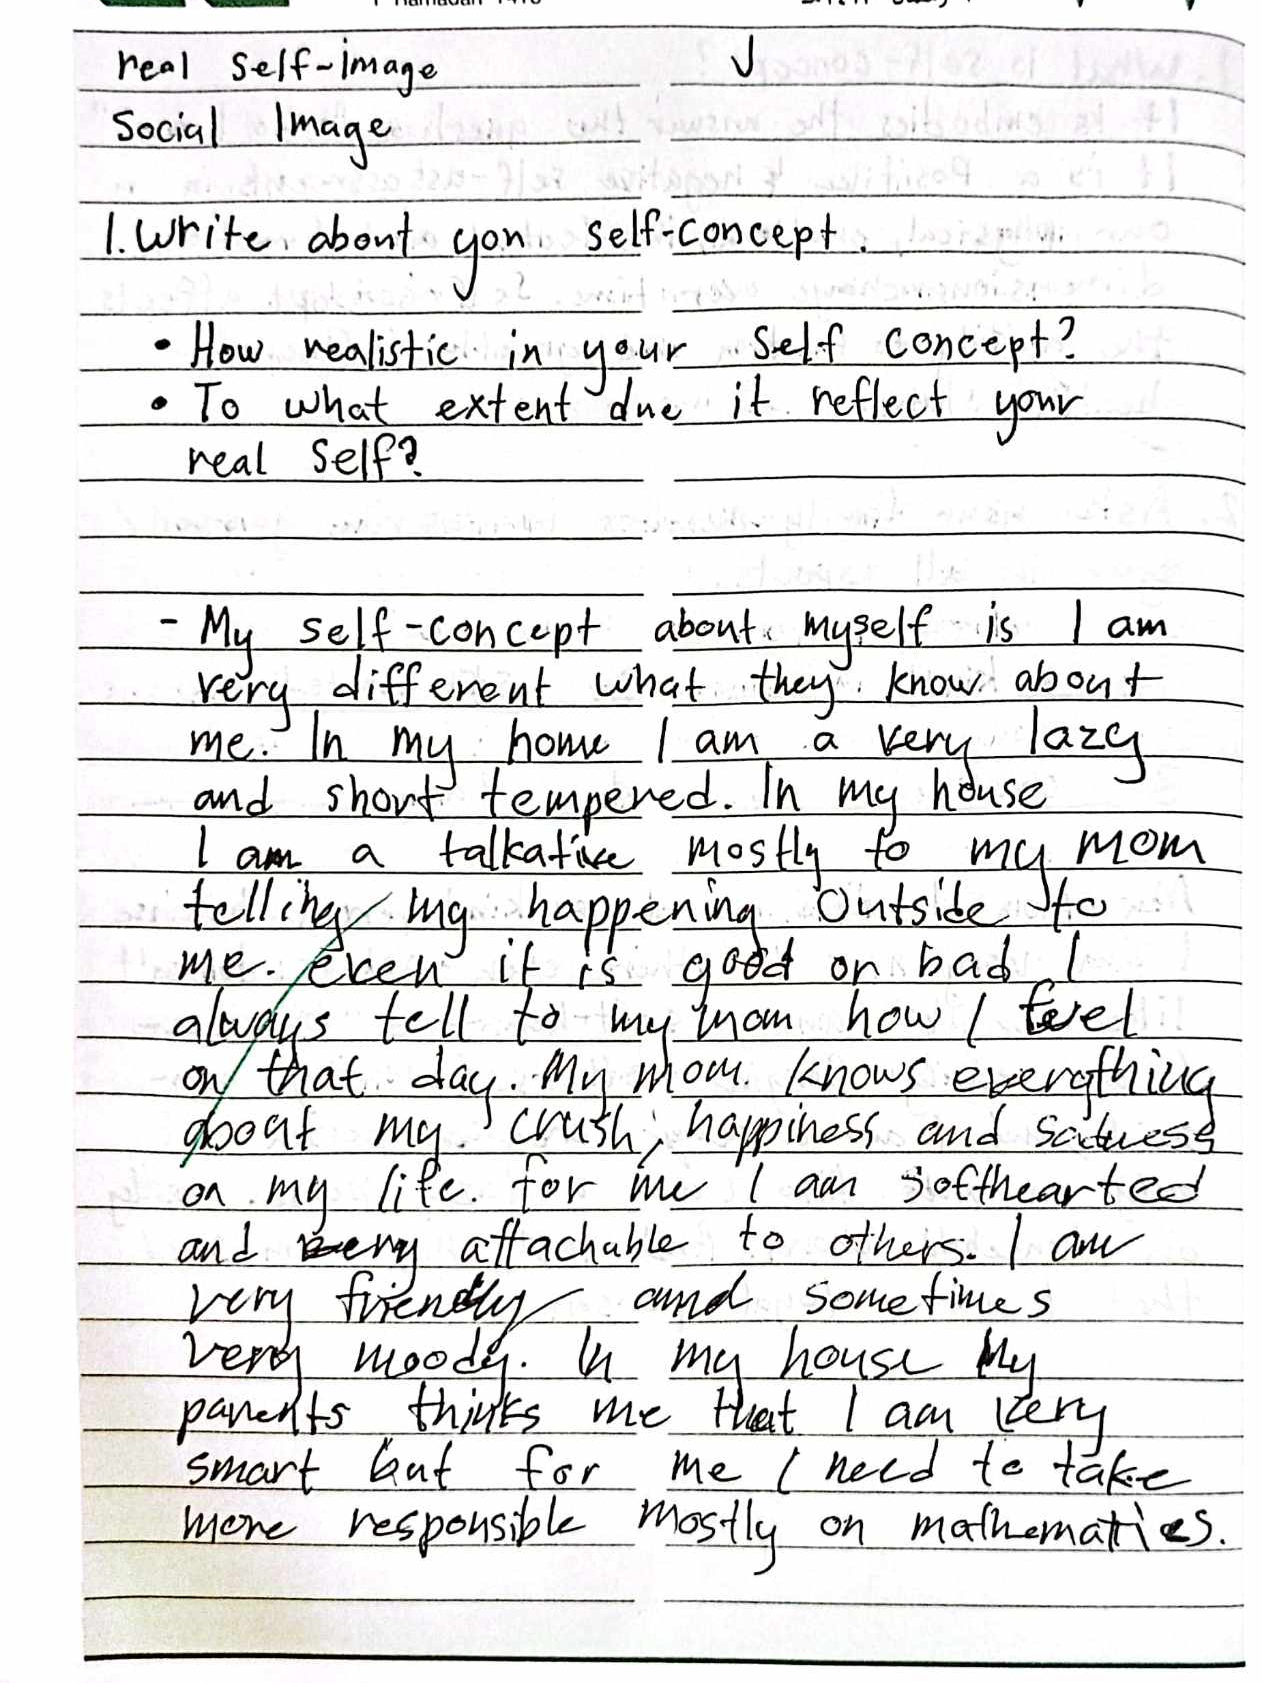 real self-image
Social Image
1. Write about your self-concept.
• How realistic in your self concept?
• To what extent due it reflect your
real self?
- My self-concept about myself is I am
very different what they know about
me. In my home I am a very lazy
and short tempered. In my house
I am a talkative mostly to my mom
telling my happening outside to
me. even it is good or bad I
always tell to my mom how I feel
on that day. My mom knows everything
about my crush, happiness and sadness
on my life. for me I am softhearted
and very attachable to others. I am
very friendly and sometimes
very moody. In my house My
parents thinks me that I am very
smart but for me I need to take
more responsible mostly on mathematics.